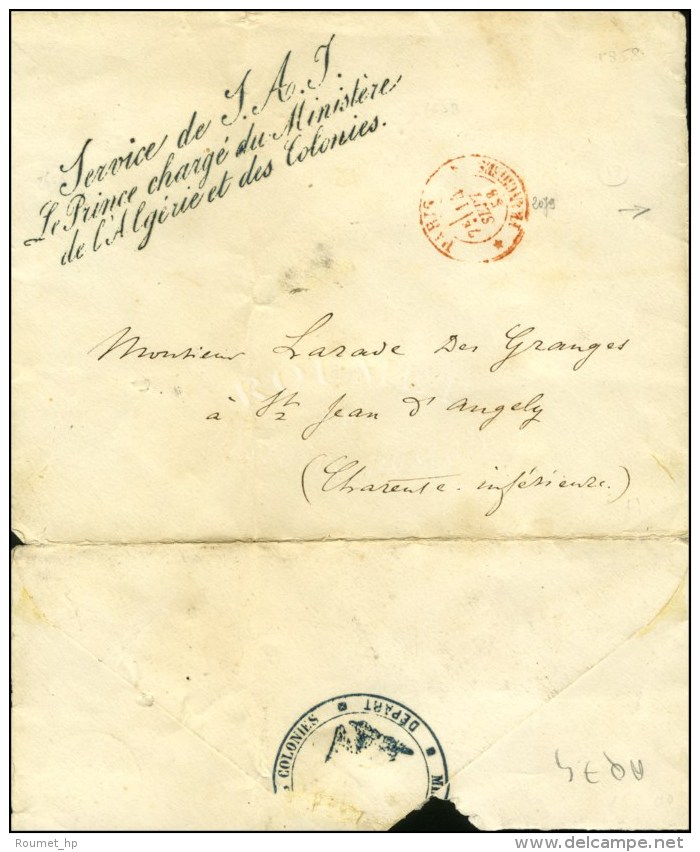 Service de S. A. I.
Le Prince chargé du Ministère
de l'Algérie et des Colonies.
PARIS
SEPT
58
2079
Monsieur Larade Des Granges
à St Jean d'Angely
(Charente inférieure.)
COLONIES * DÉPART * M
© Roumet_hp
delcampe.net